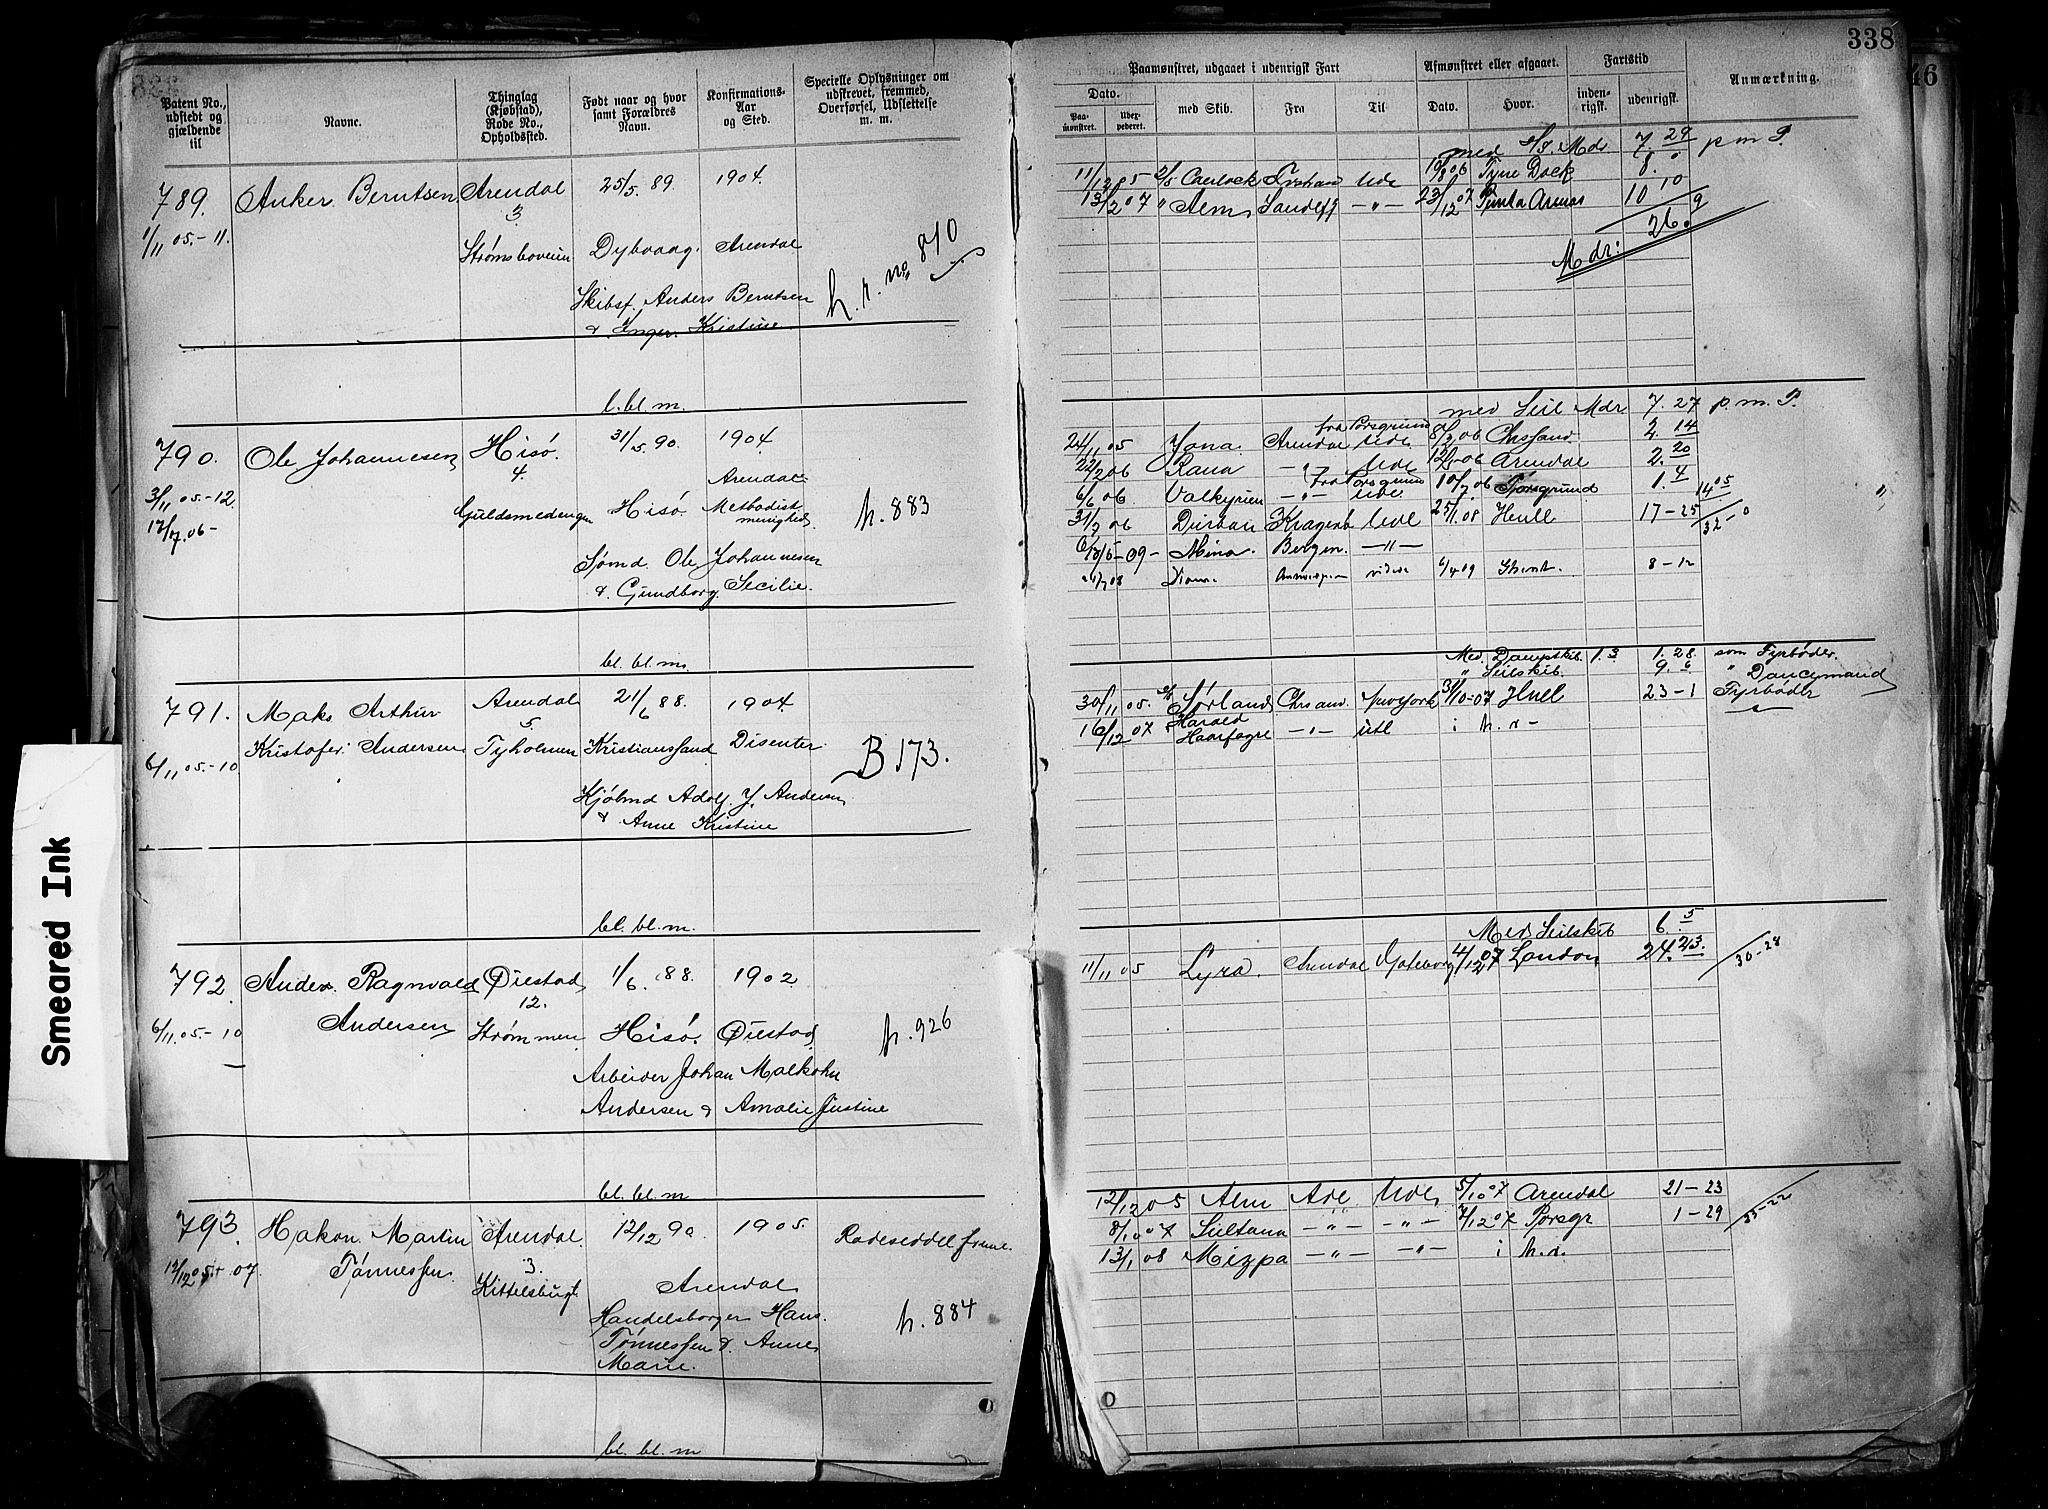 338
46
Smeared Ink
Patent No., udstedt og gjældende til
Navne.
Thinglag (Kjøbstad), Rode No., Opholdssted.
Født naar og hvor samt Forældres Navn.
Konfirmations- Aar og Sted.
Specielle Oplysninger om udskrevet, fremmed, Overførsel, Udslettelse m. m.
Paamønstret, udgaaet i udenrigsk Fart
Afmønstret eller afgaaet.
Fartstid
Anmærkning.
Dato.
Paa- mønstret.
med Skib.
Fra
Til
Dato.
Hvor.
inden- rigsk.
udenrigsk.
789. Anker Berntsen Arendal 25/5 89. 1904.
3
1/11 05.-11. Strømsboveien Dybvaag. Arendal
Skibsf. Anders Berntsen
& Inger Kristine.
h. r. no 870
l. bl. m.
790. Ole Johannesen Hisø. 31/5 90. 1904.
4.
Arendal
3/11 05.-12. Guldsmedengen Hisø Methodist menighed.
17/7.06-
h. 883
Sømd. Ole Johannesen
& Gundborg Secilie.
bl. bl. m.
791. Maks Arthur Arendal 21/6 88. 1904.
5
6/11 05.-10 Kristofer Andersen Tyholmen Kristianssand Disenter
B 173.
Kjøbmd Adolf J. Andersen
& Anne Kristine
bl. bl. m.
792. Anders Ragnvald Øiestad 1/6 88. 1902
12.
6/11 05.-10 Andersen Strømmen Hisø. Øiestad
h. 926
Arbeider Johan Malkohn
Andersen & Amalie Justine
bl. bl. m
793. Hakon Martin Arendal. 12/12 90 1905.
3.
Tønnessen. Kittelsbugt Arendal
Rodeseddel
Handelsborger Hans
Tønnessen & Anne
Marie.
h. 884
bl. bl. m
med S/S. Mdr 7. 29 p m P.
11/12 05 Tyne Dock 8. 0
13/2 07 " Alm Sandefj -"- 23/12 07 Punta Arenas 10 10
26. 9
Mdr:
med Seil Mdr 7. 27 p. m. P.
fra Porsgrund
24/11 05 Jona. Arendal Ude 8/2 06 Chrsand. 2. 14
22/2 06 Rana -"- Ude 12/5 06 Arendal 2. 20
fra Porsgrund
6/6 06 Valkyrien -"- Ude 10/7 06 Porsgrund 1. 4
14 05
31/7 06 Durban Kragerø Ude 25/1 08 Hull 17-25 32-0
Mina. Bergen. -"-
Diana. 6/4 09 Ghent. 8-12
Med. Dampskib. 1. 3. 1. 28. som Fyrbøder.
" Seilskib. 9. 6 " Donkeymand
30/11 05. S/S Sørland Chrsand New York 31/10-07 Hull 23-1 Fyrbøder
16/12 07 " Harald Haarfagre -"- utl i h. r-
Med Seilskib 6. 5
11/11 05 Lyra. Arendal Goteborg 4/12 07 London 24. 23. 30-28
12/12 05 Alm Adl Ude 5/10 07 Arendal 21-23
8/10 07 Sultana -"- -"- 7/12 07 Porsgr 1-29
13/1 08 Mizpa -"- -"- i h. r.